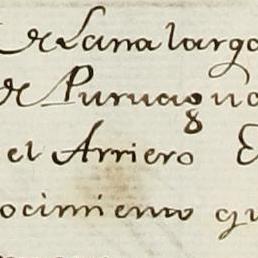 de Lana larga
de Puruagua
8
el Arriero E
ocimiento qu